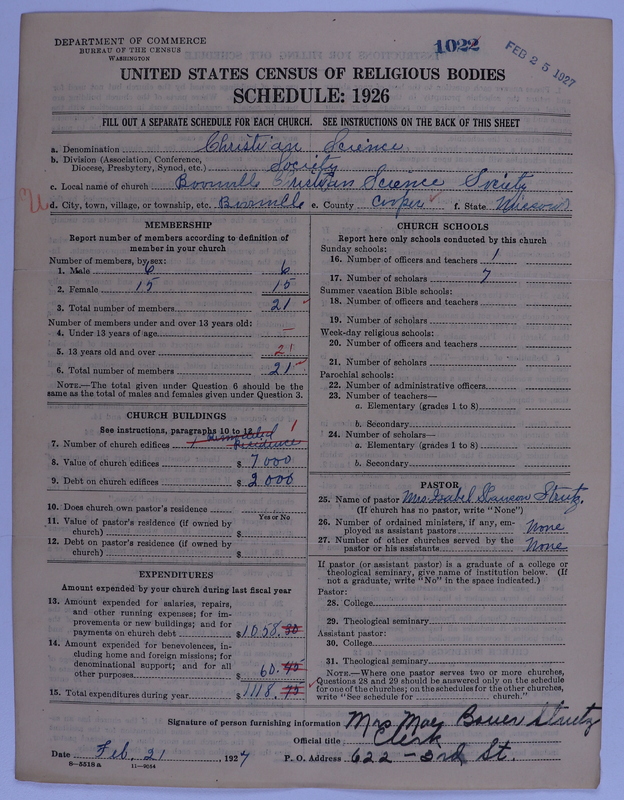 DEPARTMENT OF COMMERCE
BUREAU OF THE CENSUS
WASHINGTON
1022
FEB 25 1927
UNITED STATES CENSUS OF RELIGIOUS BODIES
SCHEDULE: 1926
FILL OUT A SEPARATE SCHEDULE FOR EACH CHURCH. SEE INSTRUCTIONS ON THE BACK OF THIS SHEET
a. Denomination Christian Science
b. Division (Association, Conference,
Diocese, Presbytery, Synod, etc.) Society
c. Local name of church Boonville Christian Science Society
d. City, town, village, or township, etc. Boonville e. County Cooper f. State Missouri
MEMBERSHIP
Report number of members according to definition of
member in your church
Number of members, by sex:
1. Male 6 6
2. Female 15 15
3. Total number of members 21
Number of members under and over 13 years old:
4. Under 13 years of age —
5. 13 years old and over 21
6. Total number of members 21
NOTE.—The total given under Question 6 should be
same as the total of males and females given under Question 3.
CHURCH BUILDINGS
See instructions, paragraphs 10 to 12 1
7. Number of church edifices 1 remodeled Residence
8. Value of church edifices $ 7000
9. Debt on church edifices $ 2000
10. Does church own pastor's residence
Yes or No
11. Value of pastor's residence (if owned by
church) $
12. Debt on pastor's residence (if owned by
church) $
EXPENDITURES
Amount expended by your church during last fiscal year
13. Amount expended for salaries, repairs,
and other running expenses; for im-
provements or new buildings; and for
payments on church debt $ 1058.30
14. Amount expended for benevolences, in-
cluding home and foreign missions; for
denominational support; and for all
other purposes 60.45
15. Total expenditures during year $ 1118.75
CHURCH SCHOOLS
Report here only schools conducted by this church
Sunday schools:
16. Number of officers and teachers 1
17. Number of scholars 7
Summer vacation Bible schools:
18. Number of officers and teachers
19. Number of scholars
Week-day religious schools:
20. Number of officers and teachers
21. Number of scholars
Parochial schools:
22. Number of administrative officers
23. Number of teachers—
a. Elementary (grades 1 to 8)
b. Secondary
24. Number of scholars—
a. Elementary (grades 1 to 8)
b. Secondary
PASTOR
25. Name of pastor Mrs. Isabel Strutz.
(If church has no pastor, write "None")
26. Number of ordained ministers, if any, em-
ployed as assistant pastors None
27. Number of other churches served by the
pastor or his assistants None
If pastor (or assistant pastor) is a graduate of a college or
theological seminary, give name of institution below. (If
not a graduate, write "No" in the space indicated.)
Pastor:
28. College
29. Theological seminary
Assistant pastor:
30. College
31. Theological seminary
NOTE.—Where one pastor serves two or more churches,
Questions 28 and 29 should be answered only on the schedule
for one of the churches; on the schedules for the other churches,
write "See schedule for church."
Signature of person furnishing information Mrs Mae Bauer Strutz
Official title Clerk
Date Feb. 21 1927 P. O. Address 622 - 3rd St.
8-5518 a 11-9054